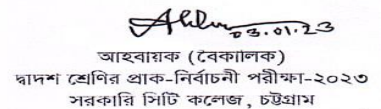 03.01.23
আহবায়ক (বৈকালিক)
দ্বাদশ শ্রেণির প্রাক-নির্বাচনী পরীক্ষা-২০২৩
সরকারি সিটি কলেজ, চট্টগ্রাম